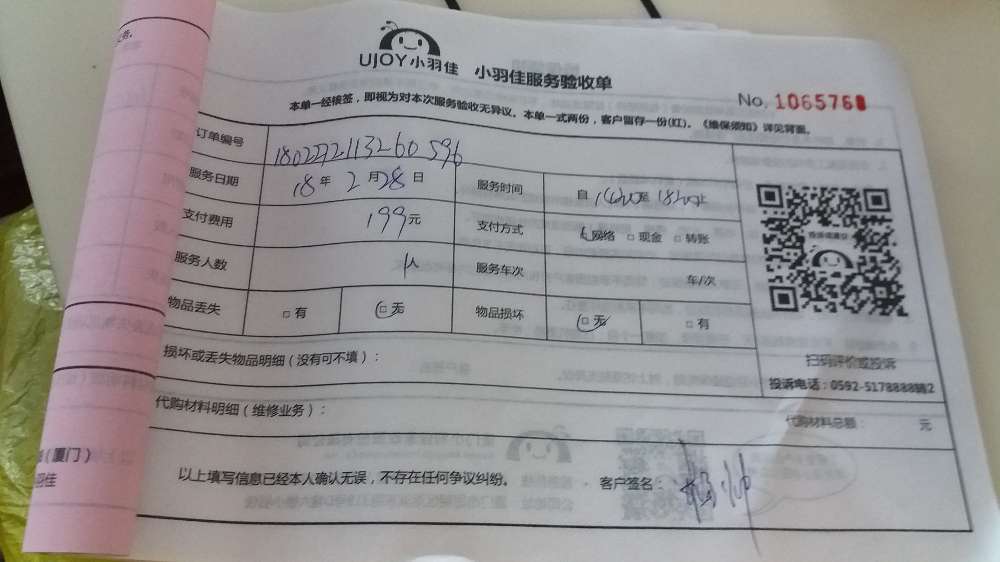 UJOY小羽佳 小羽佳服务验收单
No. 1065768
本单一经核签,即视为对本次服务验收无异议。本单一式两份,客户留存一份(红)。《维保须知》详见背面。
订单编号
服务日期 18 年 2 月 28 日 服务时间 自 至 止
支付费用 199 元 支付方式 网络 □ 现金 □ 转账
服务人数 服务车次 车/次
物品丢失 □ 有 □ 无 物品损坏 □ 无 □ 有
扫码评价或投诉
投诉电话:0592-5178888转2
损坏或丢失物品明细(没有可不填):
代购材料明细(维修业务): 代购材料总额: 元
(厦门)
以上填写信息已经本人确认无误,不存在任何争议纠纷。 客户签名: